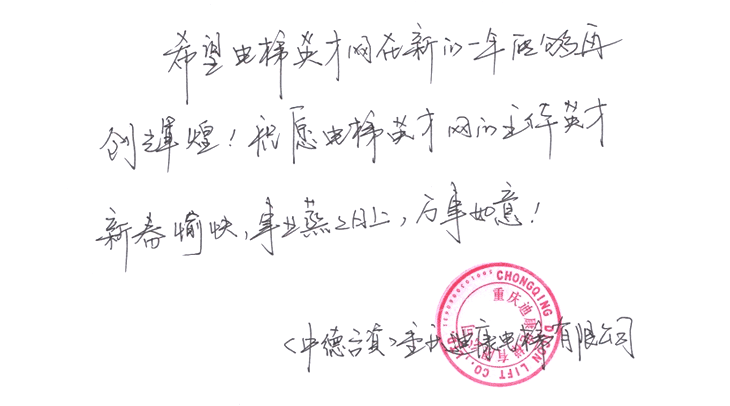 希望电梯英才网在新的一年里能够再
创辉煌！祝愿电梯英才网的全体英才
新春愉快，事业蒸蒸日上，万事如意！
<中德合资>重庆迪康电梯有限公司
CHONGQING D LIFT CO.
重庆迪康电梯有限公司